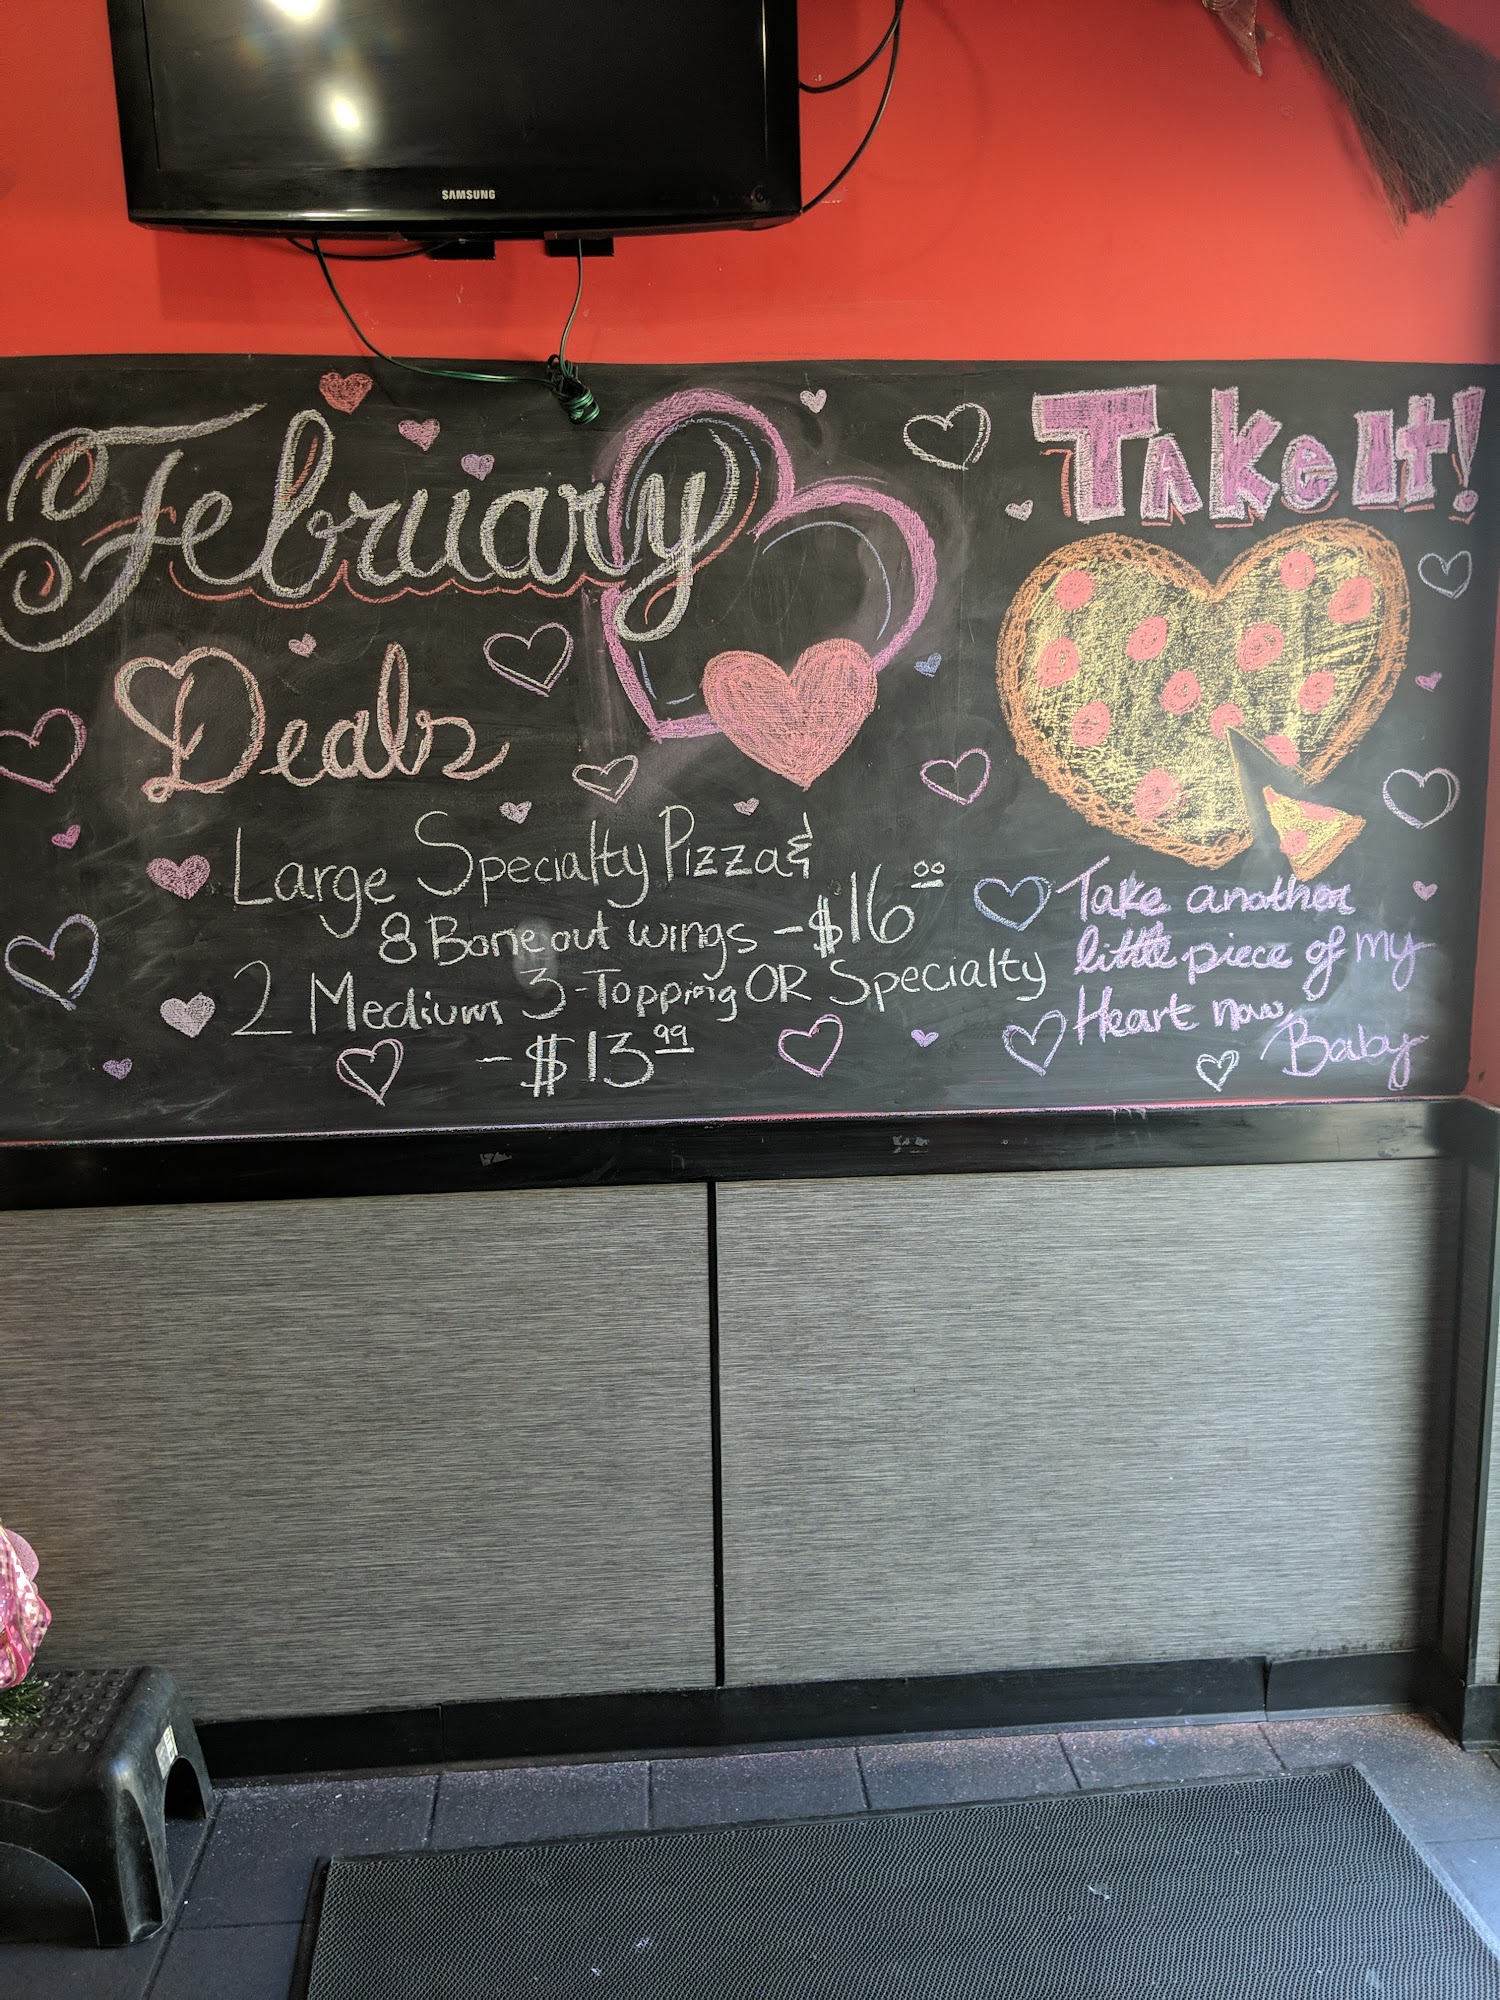 SAMSUNG
February
Deals
Large Specialty Pizza &
8 Bone out wings - $16.00
2 Medium 3-Topping OR Specialty
- $13.99
Take It!
Take another
little piece of my
Heart now,
Baby